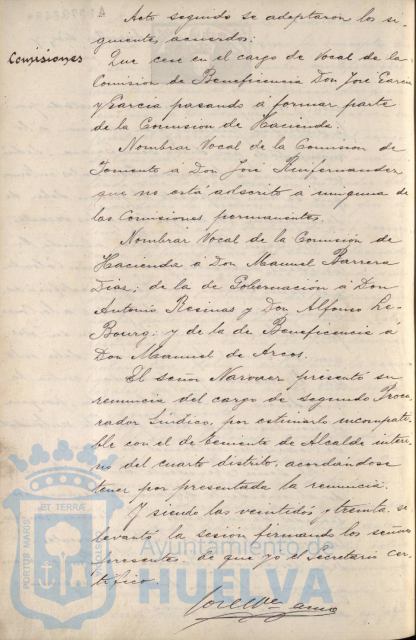 Acto seguido se adoptaron los si-
guientes acuerdos:
Comisiones
Que cese en el cargo de Vocal de la
Comision de Beneficencia Don José Garcia
y Garcia pasando á formar parte
de la Comision de Hacienda.
Nombrar Vocal de la Comision de
Fomento á Don José
que no está adscrito á ninguna de
las Comisiones permanentes.
Nombrar Vocal de la Comision de
Hacienda á Don Manuel Barrera
Dias; de la de Gobernación á Don
Antonio Resinas y Don Alfonso Le-
Bourg; y de la de Beneficencia á
Don Manuel de Arcos.
El señor Narvaez presentó su
renuncia del cargo de segundo Procu-
rador Síndico, por estimarlo incompati-
ble con el de teniente de Alcalde interi-
no del cuarto distrito, acordándose
tener por presentada la renuncia.
Y siendo las veintidos y treinta se
levantó la sesión firmando los señores
presentes, de que yo el secretario cer-
tifico.
PORTUS MARIS
ET TERRÆ
CUSTODIA
Ayuntamiento de
HUELVA